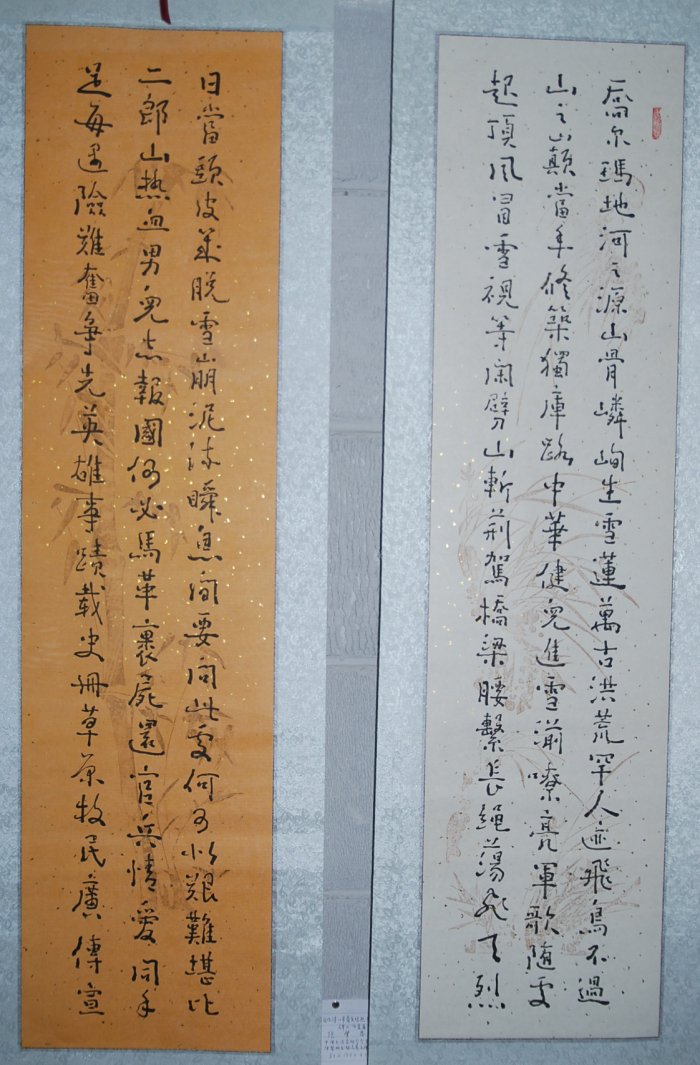 喬尔瑪地河之源山骨嶙峋生雪蓮萬古洪荒罕人迹飛鳥不過
山之巔當年修築獨庫路中華健児進雪湖嘹亮軍歌隨雯
起頂風冒雪視等闲劈山斬荊駕橋梁腰繫長繩蕩飛天烈
日當頭皮葉脱雪崩泥流瞬息间要问此雯何可以艱難堪比
二郎山热血男児志報國何必馬革裹屍還官兵情愛同手
足每遇險難奮争先英雄事蹟载史冊草原牧民廣傳宣